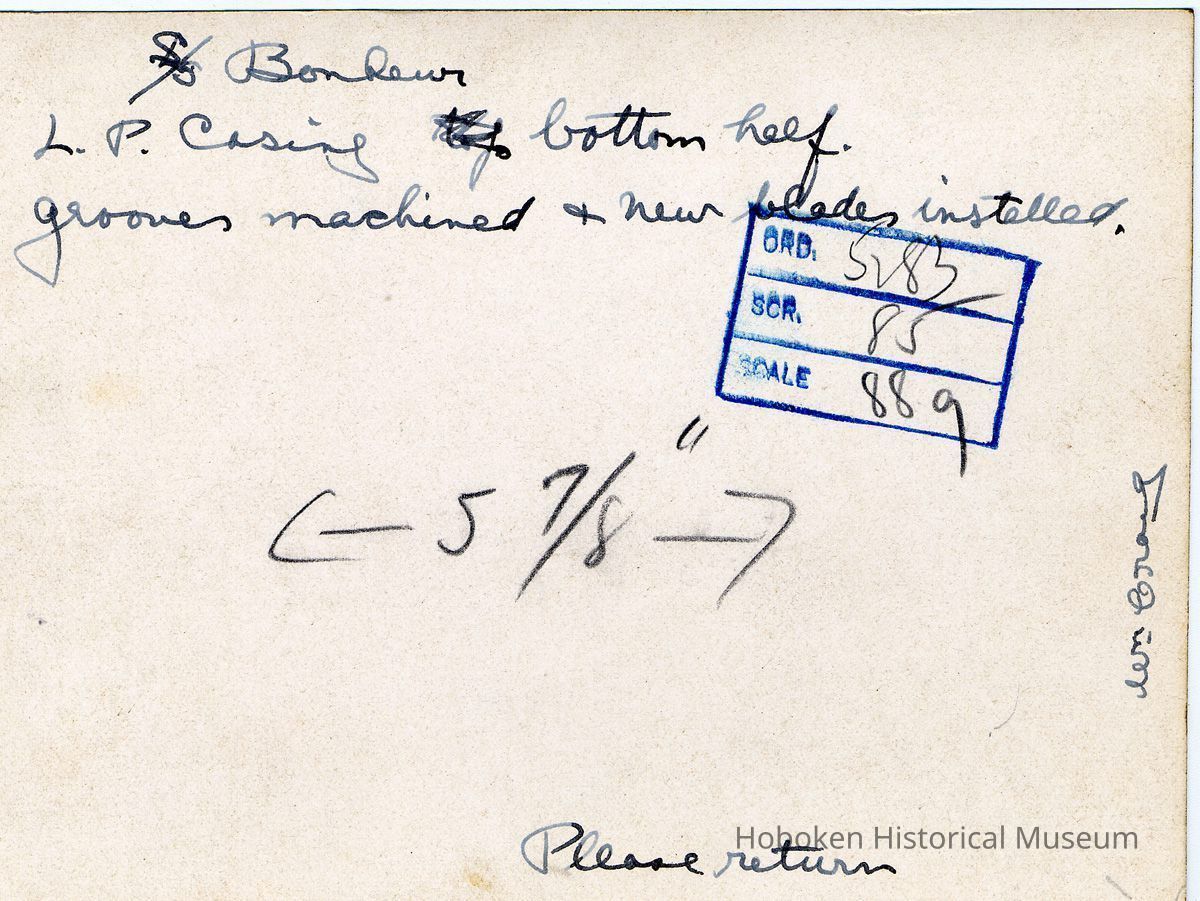 S/S Bonheur
L. P. Casing bottom half.
grooves machined & new blades installed.
ORD. 5283
SCR. 85
SCALE 889
5 7/8"
Wm
Please return
Hoboken Historical Museum